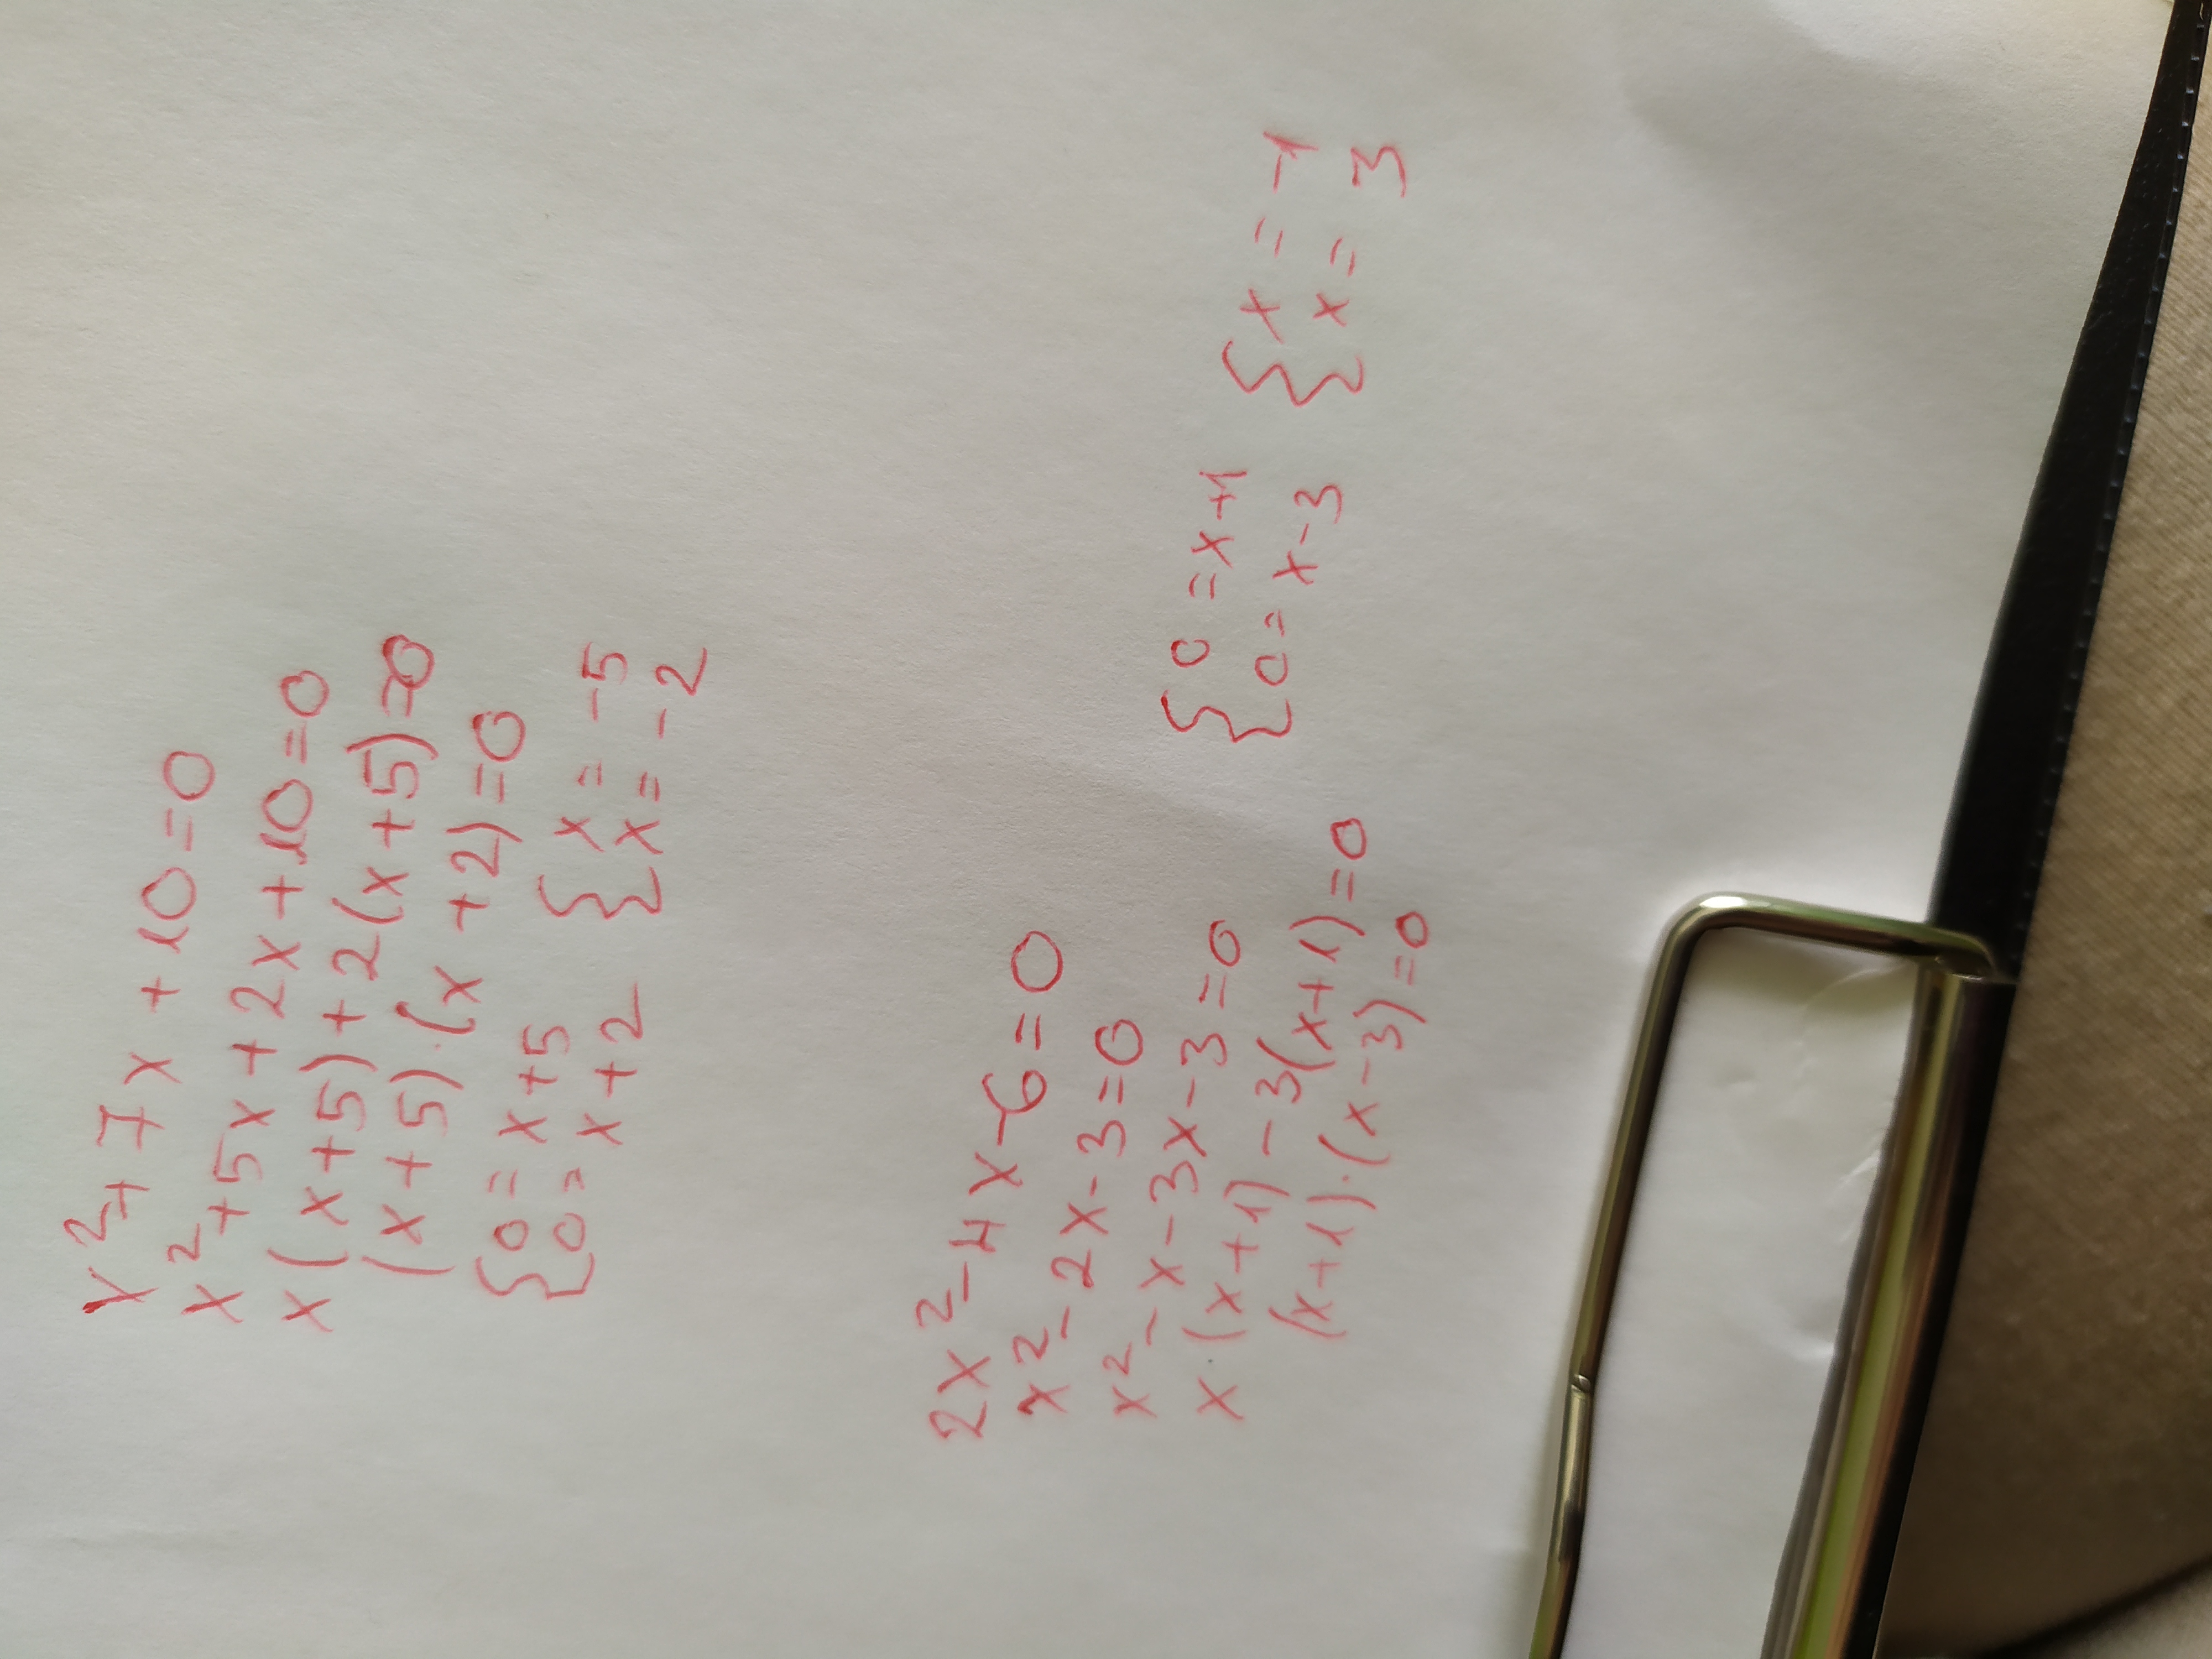 x²+7x+10=0
x²+5x+2x+10=0
x(x+5)+2(x+5)=0
(x+5)·(x+2)=0
{0=x+5 {x=-5
{0=x+2 {x=-2
2x²-4x-6=0
x²-2x-3=0
x²-x-3x-3=0
x·(x+1)-3(x+1)=0
(x+1)·(x-3)=0
{0=x+1 {x=-1
{0=x-3 {x=3